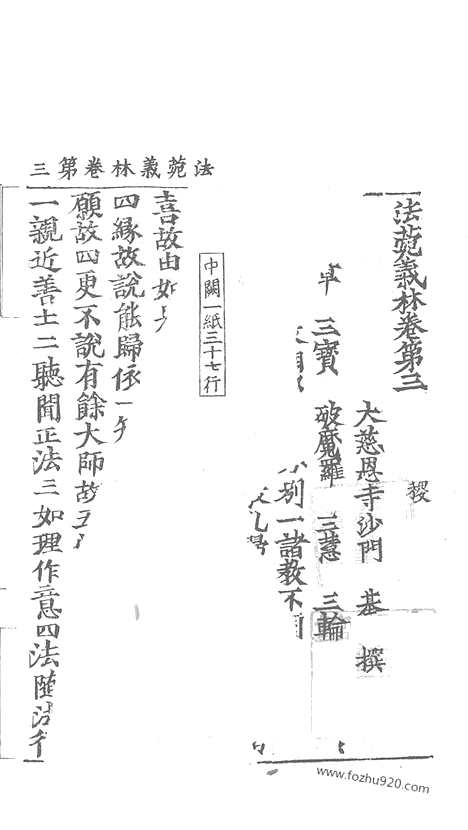 法菀義林卷第三
稷
大慈恩寺沙門 基 撰
三寶 破魔羅 三慧 三輪
一諸教不同
中闕一紙三十七行
喜故由如
四縁故說能歸依一
願故四更不說有餘大師故五
一親近善士二聽聞正法三如理作意四法隨法行
法菀義林卷第三
www.fozhu920.com